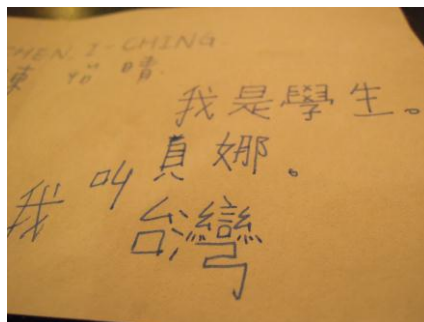 CHEN, I-CHING
陳怡晴
我是學生。
我叫貞娜。
台灣